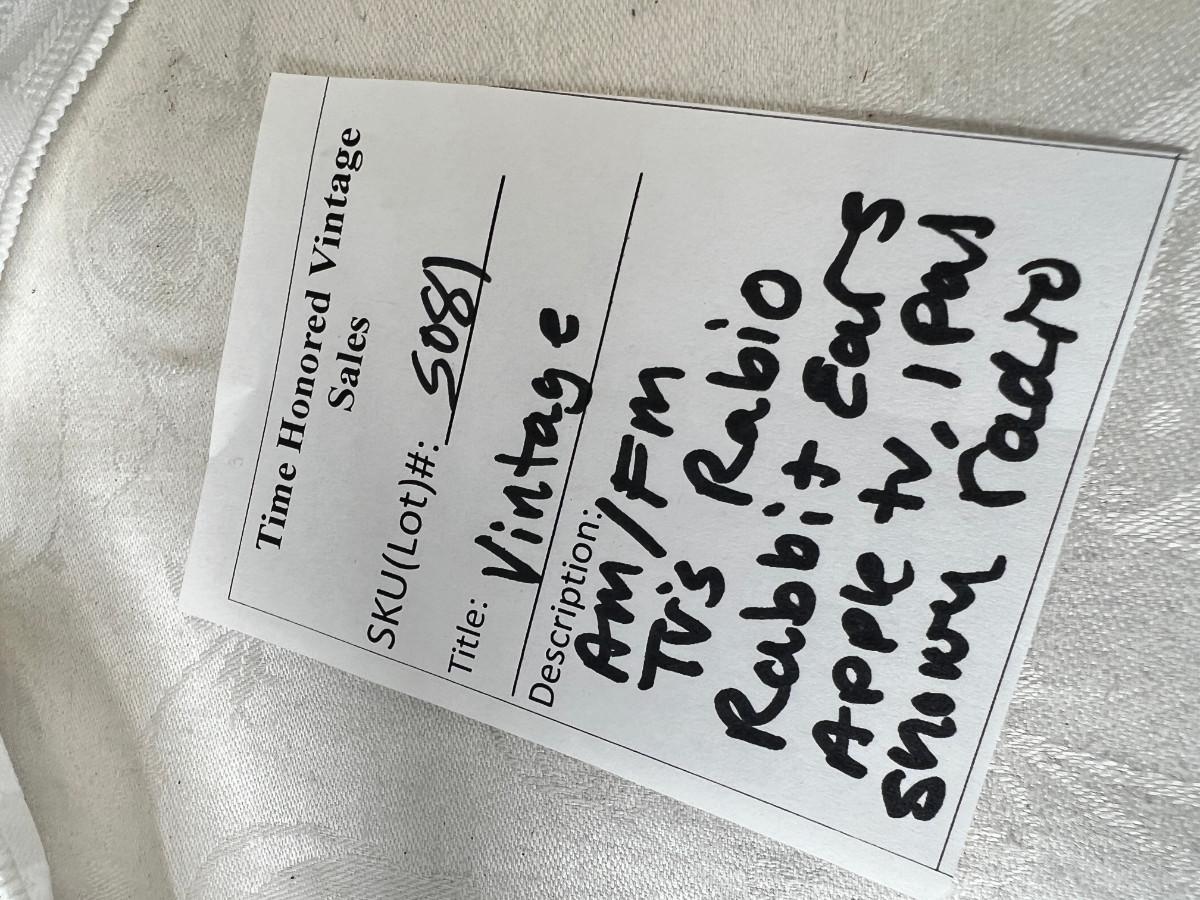 Time Honored Vintage
Sales
SKU(Lot)#: S081
Title: Vintage
Description:
Am/Fm
TV's Rabio
Rabbit Ears
Apple tv, iPad
Shown radio